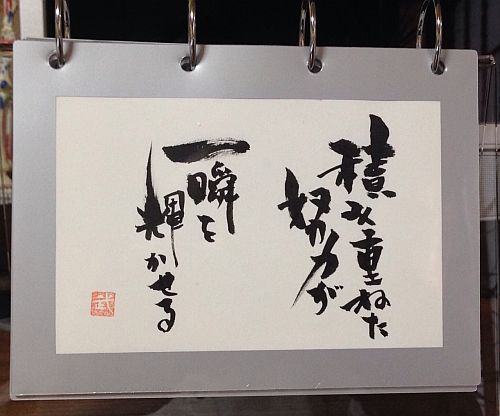 積み重ねた
努力が
一瞬を
輝かせる
武